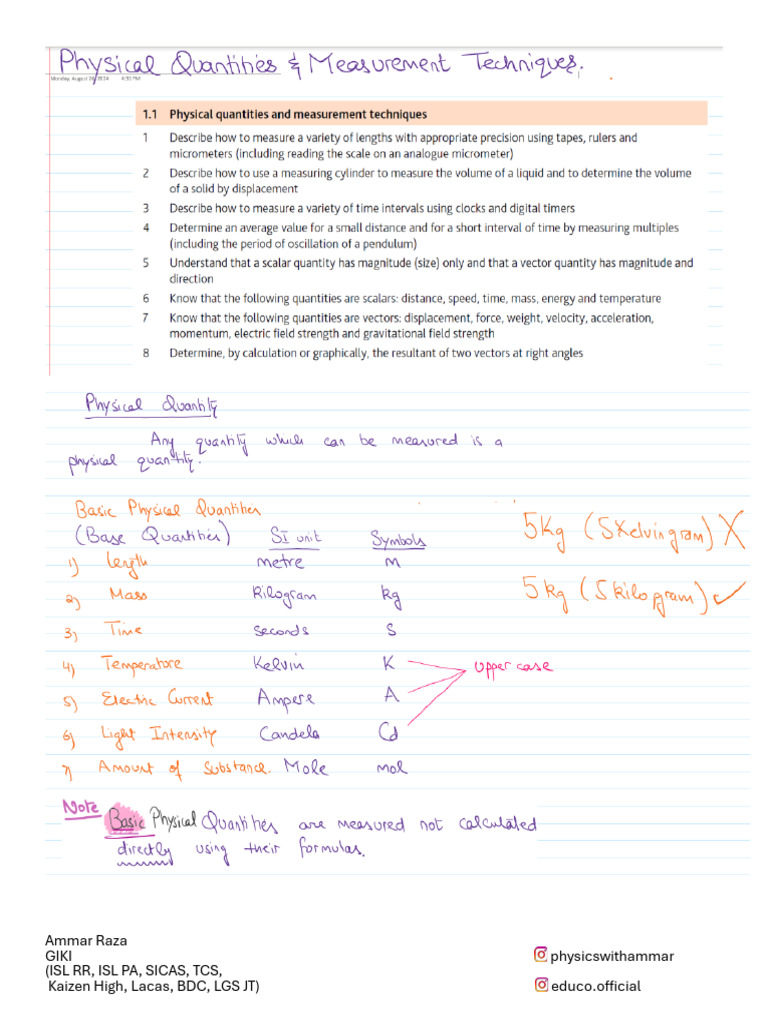 Physical Quantities & Measurement Techniques.
Monday, August 26, 2024 4:30 PM
1.1 Physical quantities and measurement techniques
1 Describe how to measure a variety of lengths with appropriate precision using tapes, rulers and
micrometers (including reading the scale on an analogue micrometer)
2 Describe how to use a measuring cylinder to measure the volume of a liquid and to determine the volume
of a solid by displacement
3 Describe how to measure a variety of time intervals using clocks and digital timers
4 Determine an average value for a small distance and for a short interval of time by measuring multiples
(including the period of oscillation of a pendulum)
5 Understand that a scalar quantity has magnitude (size) only and that a vector quantity has magnitude and
direction
6 Know that the following quantities are scalars: distance, speed, time, mass, energy and temperature
7 Know that the following quantities are vectors: displacement, force, weight, velocity, acceleration,
momentum, electric field strength and gravitational field strength
8 Determine, by calculation or graphically, the resultant of two vectors at right angles
Physical Quantity
Any quantity which can be measured is a
physical quantity.
Basic Physical Quantities
(Base Quantities) SI unit Symbols
5Kg (5Kelvingram) X
1) Length metre m
2) Mass Kilogram kg
5kg (5kilogram) ✓
3) Time seconds s
4) Temperature Kelvin K
upper case
5) Electric Current Ampere A
6) Light Intensity Candela Cd
7) Amount of Substance. Mole mol
Note
Basic Physical Quantities are measured not calculated
directly using their formulas.
Ammar Raza
GIKI
(ISL RR, ISL PA, SICAS, TCS,
Kaizen High, Lacas, BDC, LGS JT)
physicswithammar
educo.official